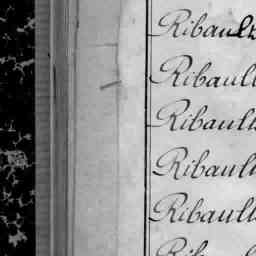 Ribault
Ribault
Ribault
Ribault
Ribault
Rib